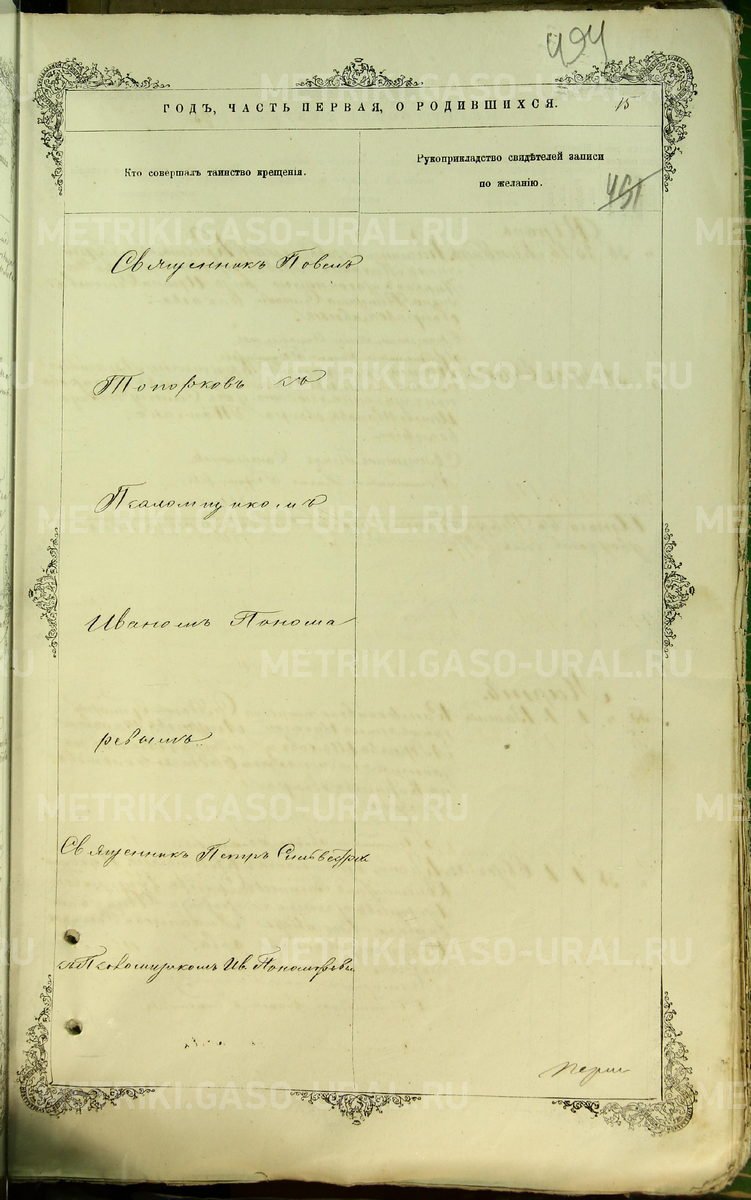 494
ГОДЪ, ЧАСТЬ ПЕРВАЯ, О РОДИВШИХСЯ.
15
Кто совершалъ таинство крещенія.
Рукоприкладство свидѣтелей записи
по желанію.
491
Священникъ Павелъ
Топорковъ съ
Псаломщикомъ
Иваномъ Понома
ревымъ.
Священникъ Петръ
съ Псаломщикомъ Ив. Пономаревы
METRIKI.GASO-URAL.RU